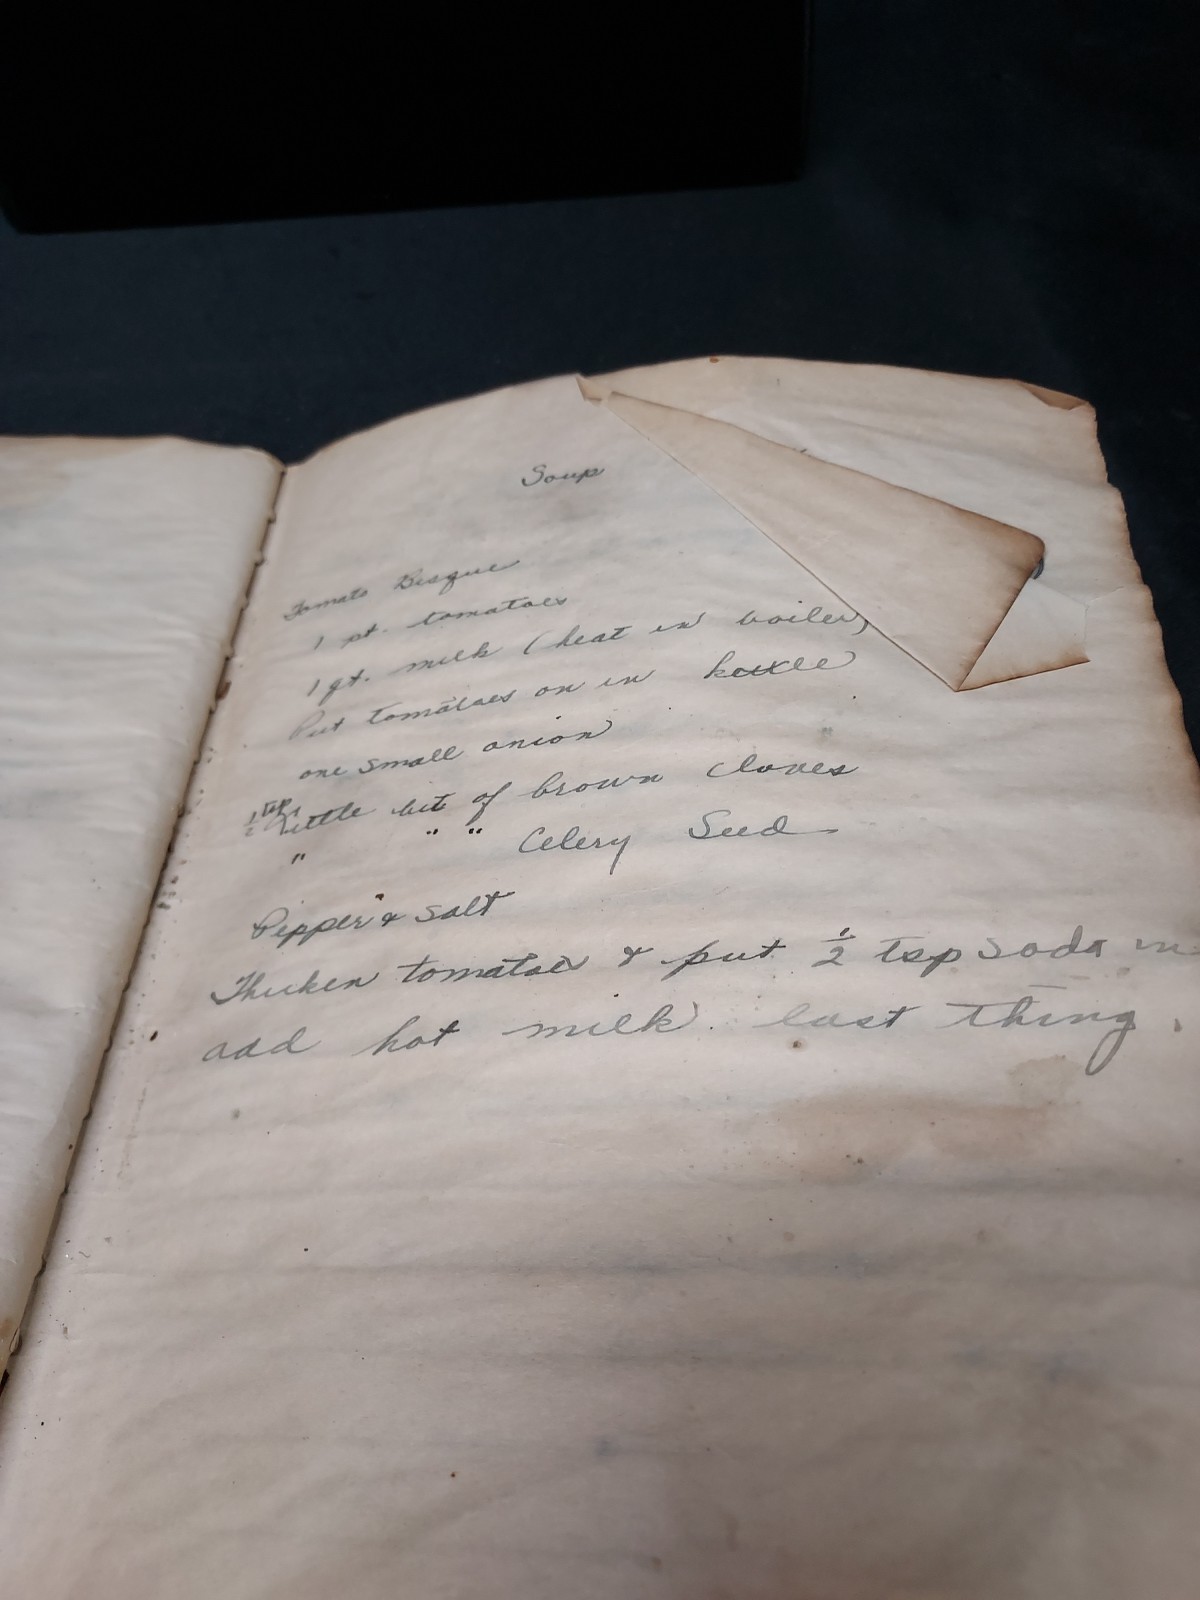 Soup
Tomato Bisque
1 pt. tomatoes
1 qt. milk (heat in boiler)
Put tomatoes on in kettle
one small onion
1/2 tsp Little bit of brown cloves
" " " Celery Seed
Pepper & Salt
Thicken tomatoes & put 1/2 tsp soda in
add hot milk last thing.